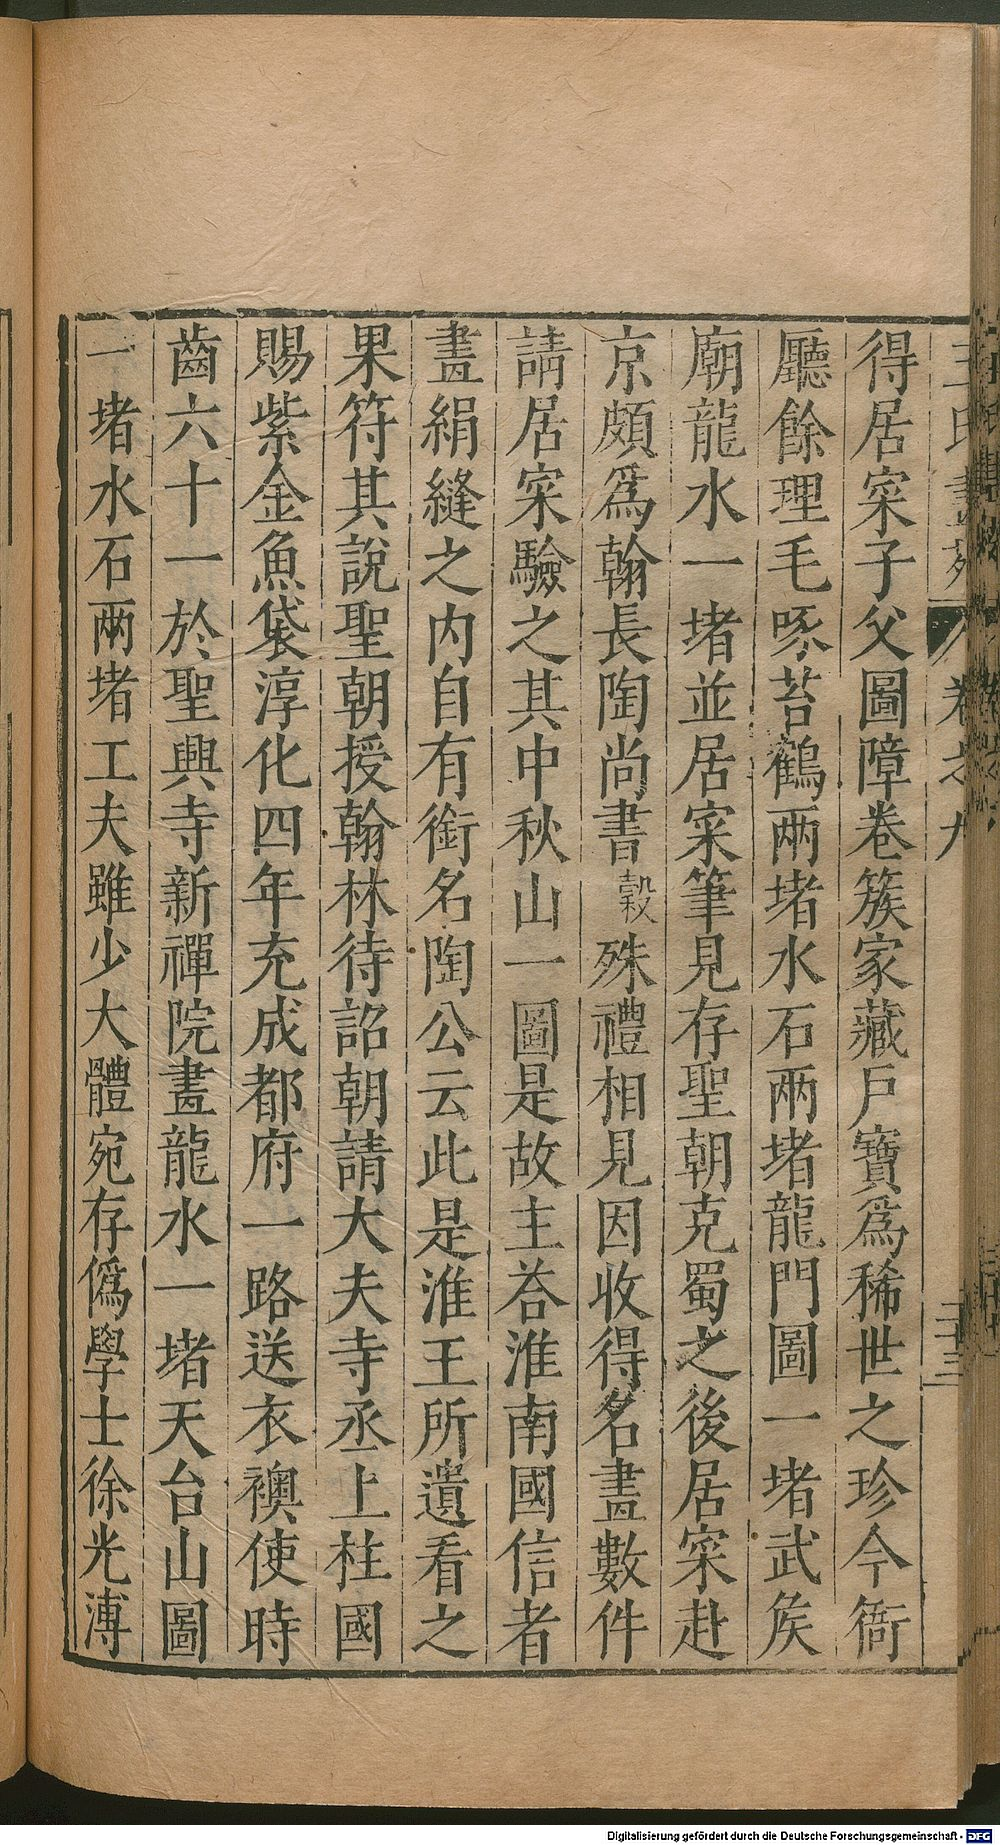 王氏畫苑 卷之九 二十三
得居寀子父圖障卷簇家藏戶寶爲稀世之珍今衙
廳餘理毛啄苔鶴兩堵水石兩堵龍門圖一堵武矦
廟龍水一堵並居寀筆見存聖朝克蜀之後居寀赴
京頗爲翰長陶尚書穀殊禮相見因收得名畫數件
請居寀驗之其中秋山一圖是故主荅淮南國信者
畫絹縫之内自有銜名陶公云此是淮王所遺看之
果符其說聖朝授翰林待詔朝請大夫寺丞上柱國
賜紫金魚袋淳化四年充成都府一路送衣襖使時
齒六十一於聖興寺新禪院畫龍水一堵天台山圖
一堵水石兩堵工夫雖少大體宛存僞學士徐光溥
Digitalisierung gefördert durch die Deutsche Forschungsgemeinschaft - DFG